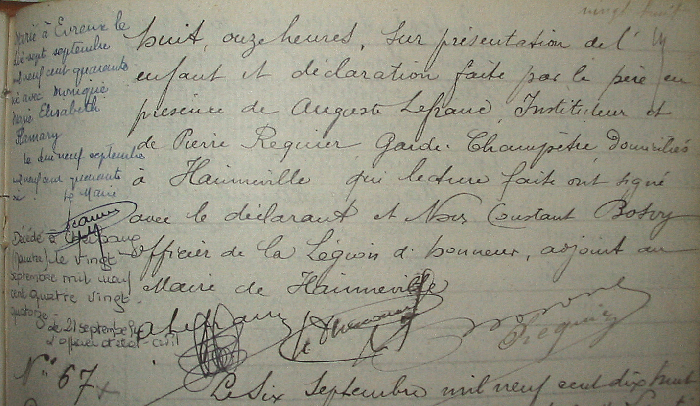 vingt huit
huit, onze heures, sur présentation de l'
enfant et déclaration faite par le père en
présence de Auguste Lefranc, Instituteur et
de Pierre Requier Garde Champêtre, domiciliés
à Hainneville qui lecture faite ont signé
avec le déclarant et Nous Constant Bosvy
officier de la Légion d'honneur, adjoint au
Maire de Hainneville
a Lefranc
Requier
Marié à Evreux le
dix sept septembre
mil neuf cent quarante
avec Monique
Marie Elisabeth
le dix neuf septembre
mil neuf cent quarante
Le Maire
Décédé à Cherbourg
(Manche) le vingt
septembre mil neuf
cent quatre vingt
quatorze
le 21 septembre
L'officier d'état-civil
N° 67
Le Six Septembre mil neuf cent dix huit